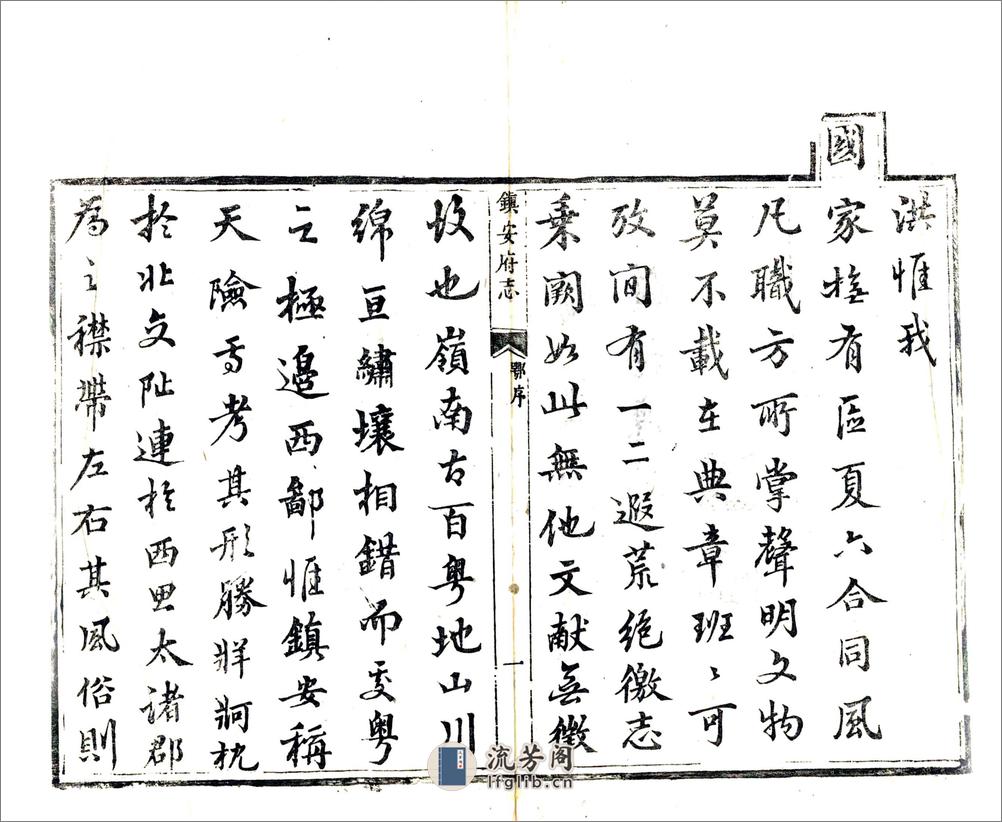 洪惟我
國家撫有區夏六合同風
凡職方所掌聲明文物
莫不載在典章班〻可
攷間有一二遐荒絕徼志
乗闕如此無他文献無徵
故也嶺南古百粤地山川
綿亘繡壤相錯而𠁅粤
之極邉西鄙惟鎮安稱
天險焉考其形勝牂牁枕
於北交阯連於西思太諸郡
為之襟帶左右其風俗則
鎮安府志
鄂序
一
流芳阁
lfglib.cn